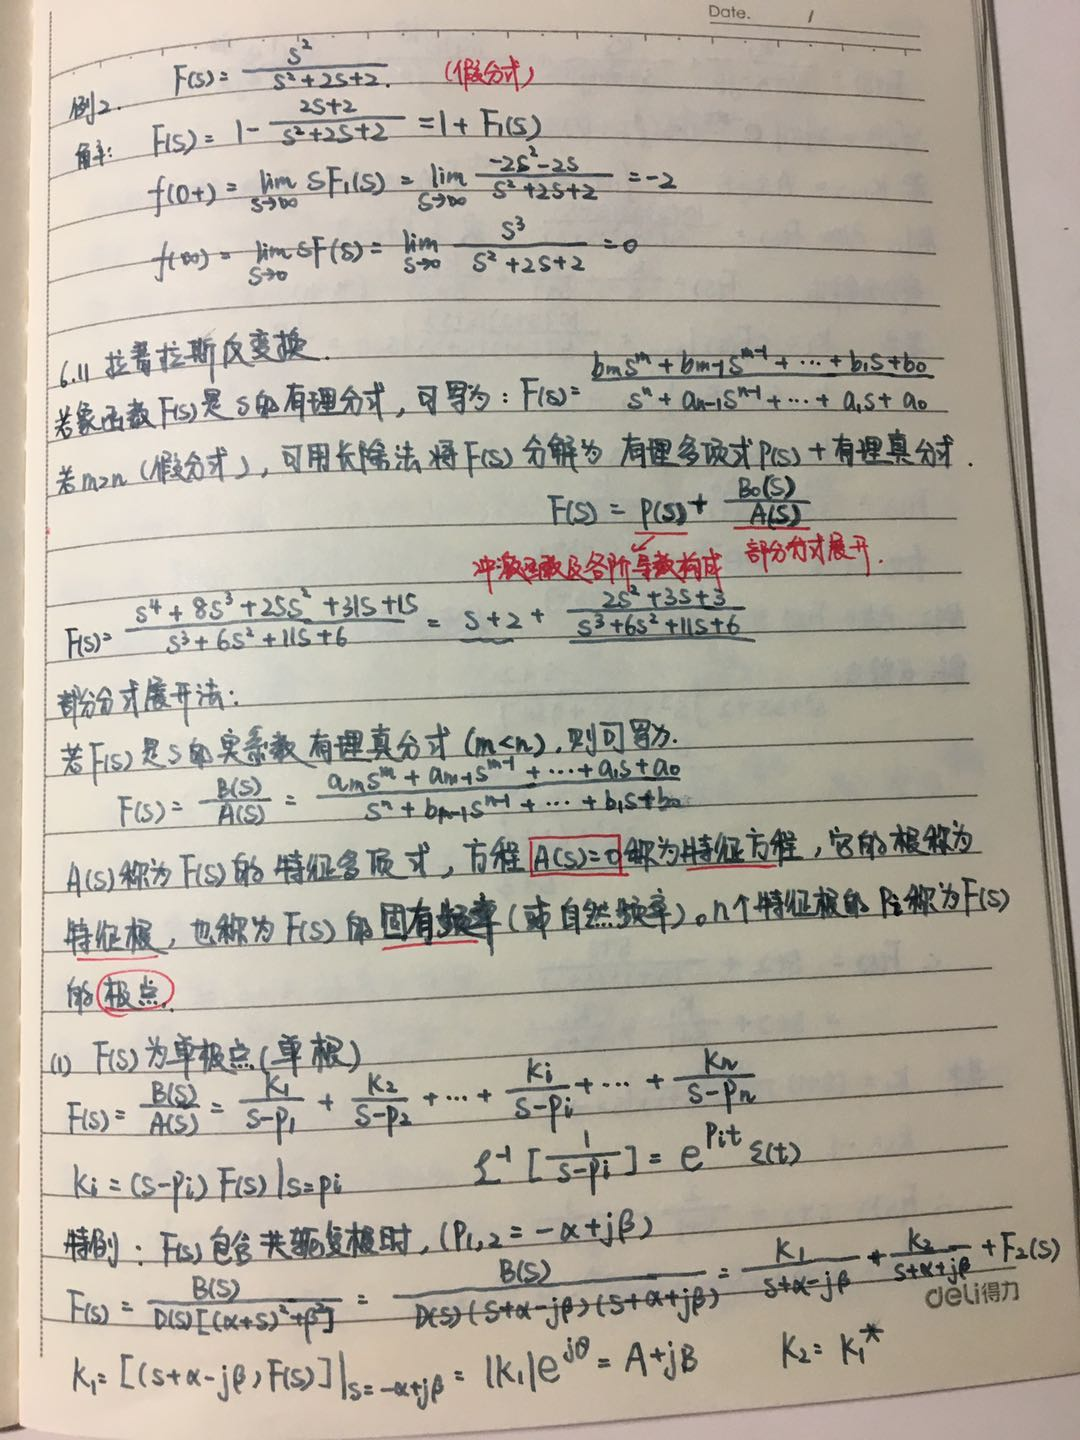 Date. /
例2. F(s) = s²/(s²+2s+2). (假分式)
解: F(s) = 1 - (2s+2)/(s²+2s+2) = 1 + F₁(s)
f(0+) = lim_{s→∞} sF₁(s) = lim_{s→∞} (-2s²-2s)/(s²+2s+2) = -2
f(∞) = lim_{s→0} sF(s) = lim_{s→0} s³/(s²+2s+2) = 0
6.11 拉普拉斯反变换.
若象函数F(s)是s的有理分式, 可写为: F(s) = (bₘsᵐ + bₘ₋₁sᵐ⁻¹ + ⋯ + b₁s + b₀)/(sⁿ + aₙ₋₁sⁿ⁻¹ + ⋯ + a₁s + a₀)
若m≥n (假分式), 可用长除法将F(s)分解为 有理多项式P(s) + 有理真分式.
F(s) = P(s) + B₀(s)/A(s)
冲激函数及各阶导数构成 部分分式展开.
F(s) = (s⁴ + 8s³ + 25s² + 31s + 15)/(s³ + 6s² + 11s + 6) = s + 2 + (2s² + 3s + 3)/(s³ + 6s² + 11s + 6)
部分分式展开法:
若F(s)是s的实系数有理真分式 (m<n), 则可写为.
F(s) = B(s)/A(s) = (aₘsᵐ + aₘ₋₁sᵐ⁻¹ + ⋯ + a₁s + a₀)/(sⁿ + bₙ₋₁sⁿ⁻¹ + ⋯ + b₁s + b₀)
A(s)称为F(s)的特征多项式, 方程A(s)=0称为特征方程, 它的根称为
特征根, 也称为F(s)的固有频率(或自然频率)。n个特征根的Pi称为F(s)
的极点.
(1) F(s)为单极点(单根)
F(s) = B(s)/A(s) = K₁/(s-p₁) + K₂/(s-p₂) + ⋯ + Ki/(s-pi) + ⋯ + Kn/(s-pn)
Ki = (s-pi) F(s)|s=pi ℒ⁻¹[1/(s-pi)] = e^{pit} ε(t)
特例: F(s)包含共轭复根时, (P₁,₂ = -α+jβ)
F(s) = B(s)/(D(s)[(α+s)²+β²]) = B(s)/(D(s)(s+α-jβ)(s+α+jβ)) = K₁/(s+α-jβ) + K₂/(s+α+jβ) + F₂(s)
deli得力
K₁ = [(s+α-jβ)F(s)]|s=-α+jβ = |K₁|e^{jθ} = A+jB K₂ = K₁*